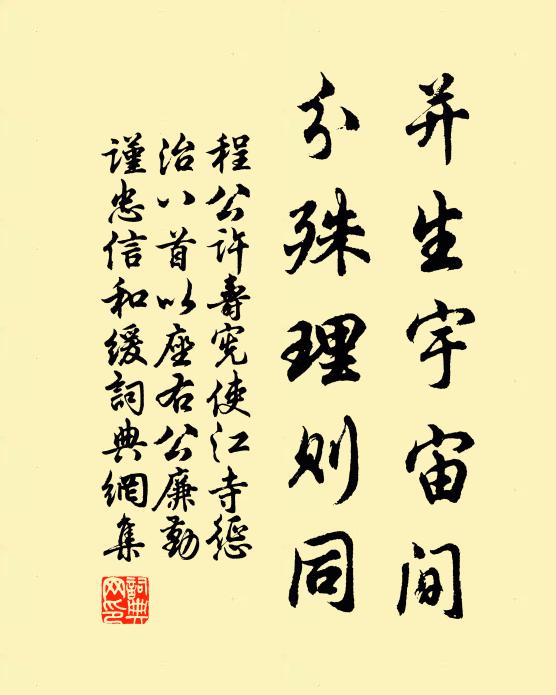 并生宇宙间
分殊理则同
程公许壽宪使江寺丞
治八首以座右公廉勤
謹忠信和缓詞典網集
詞典网印